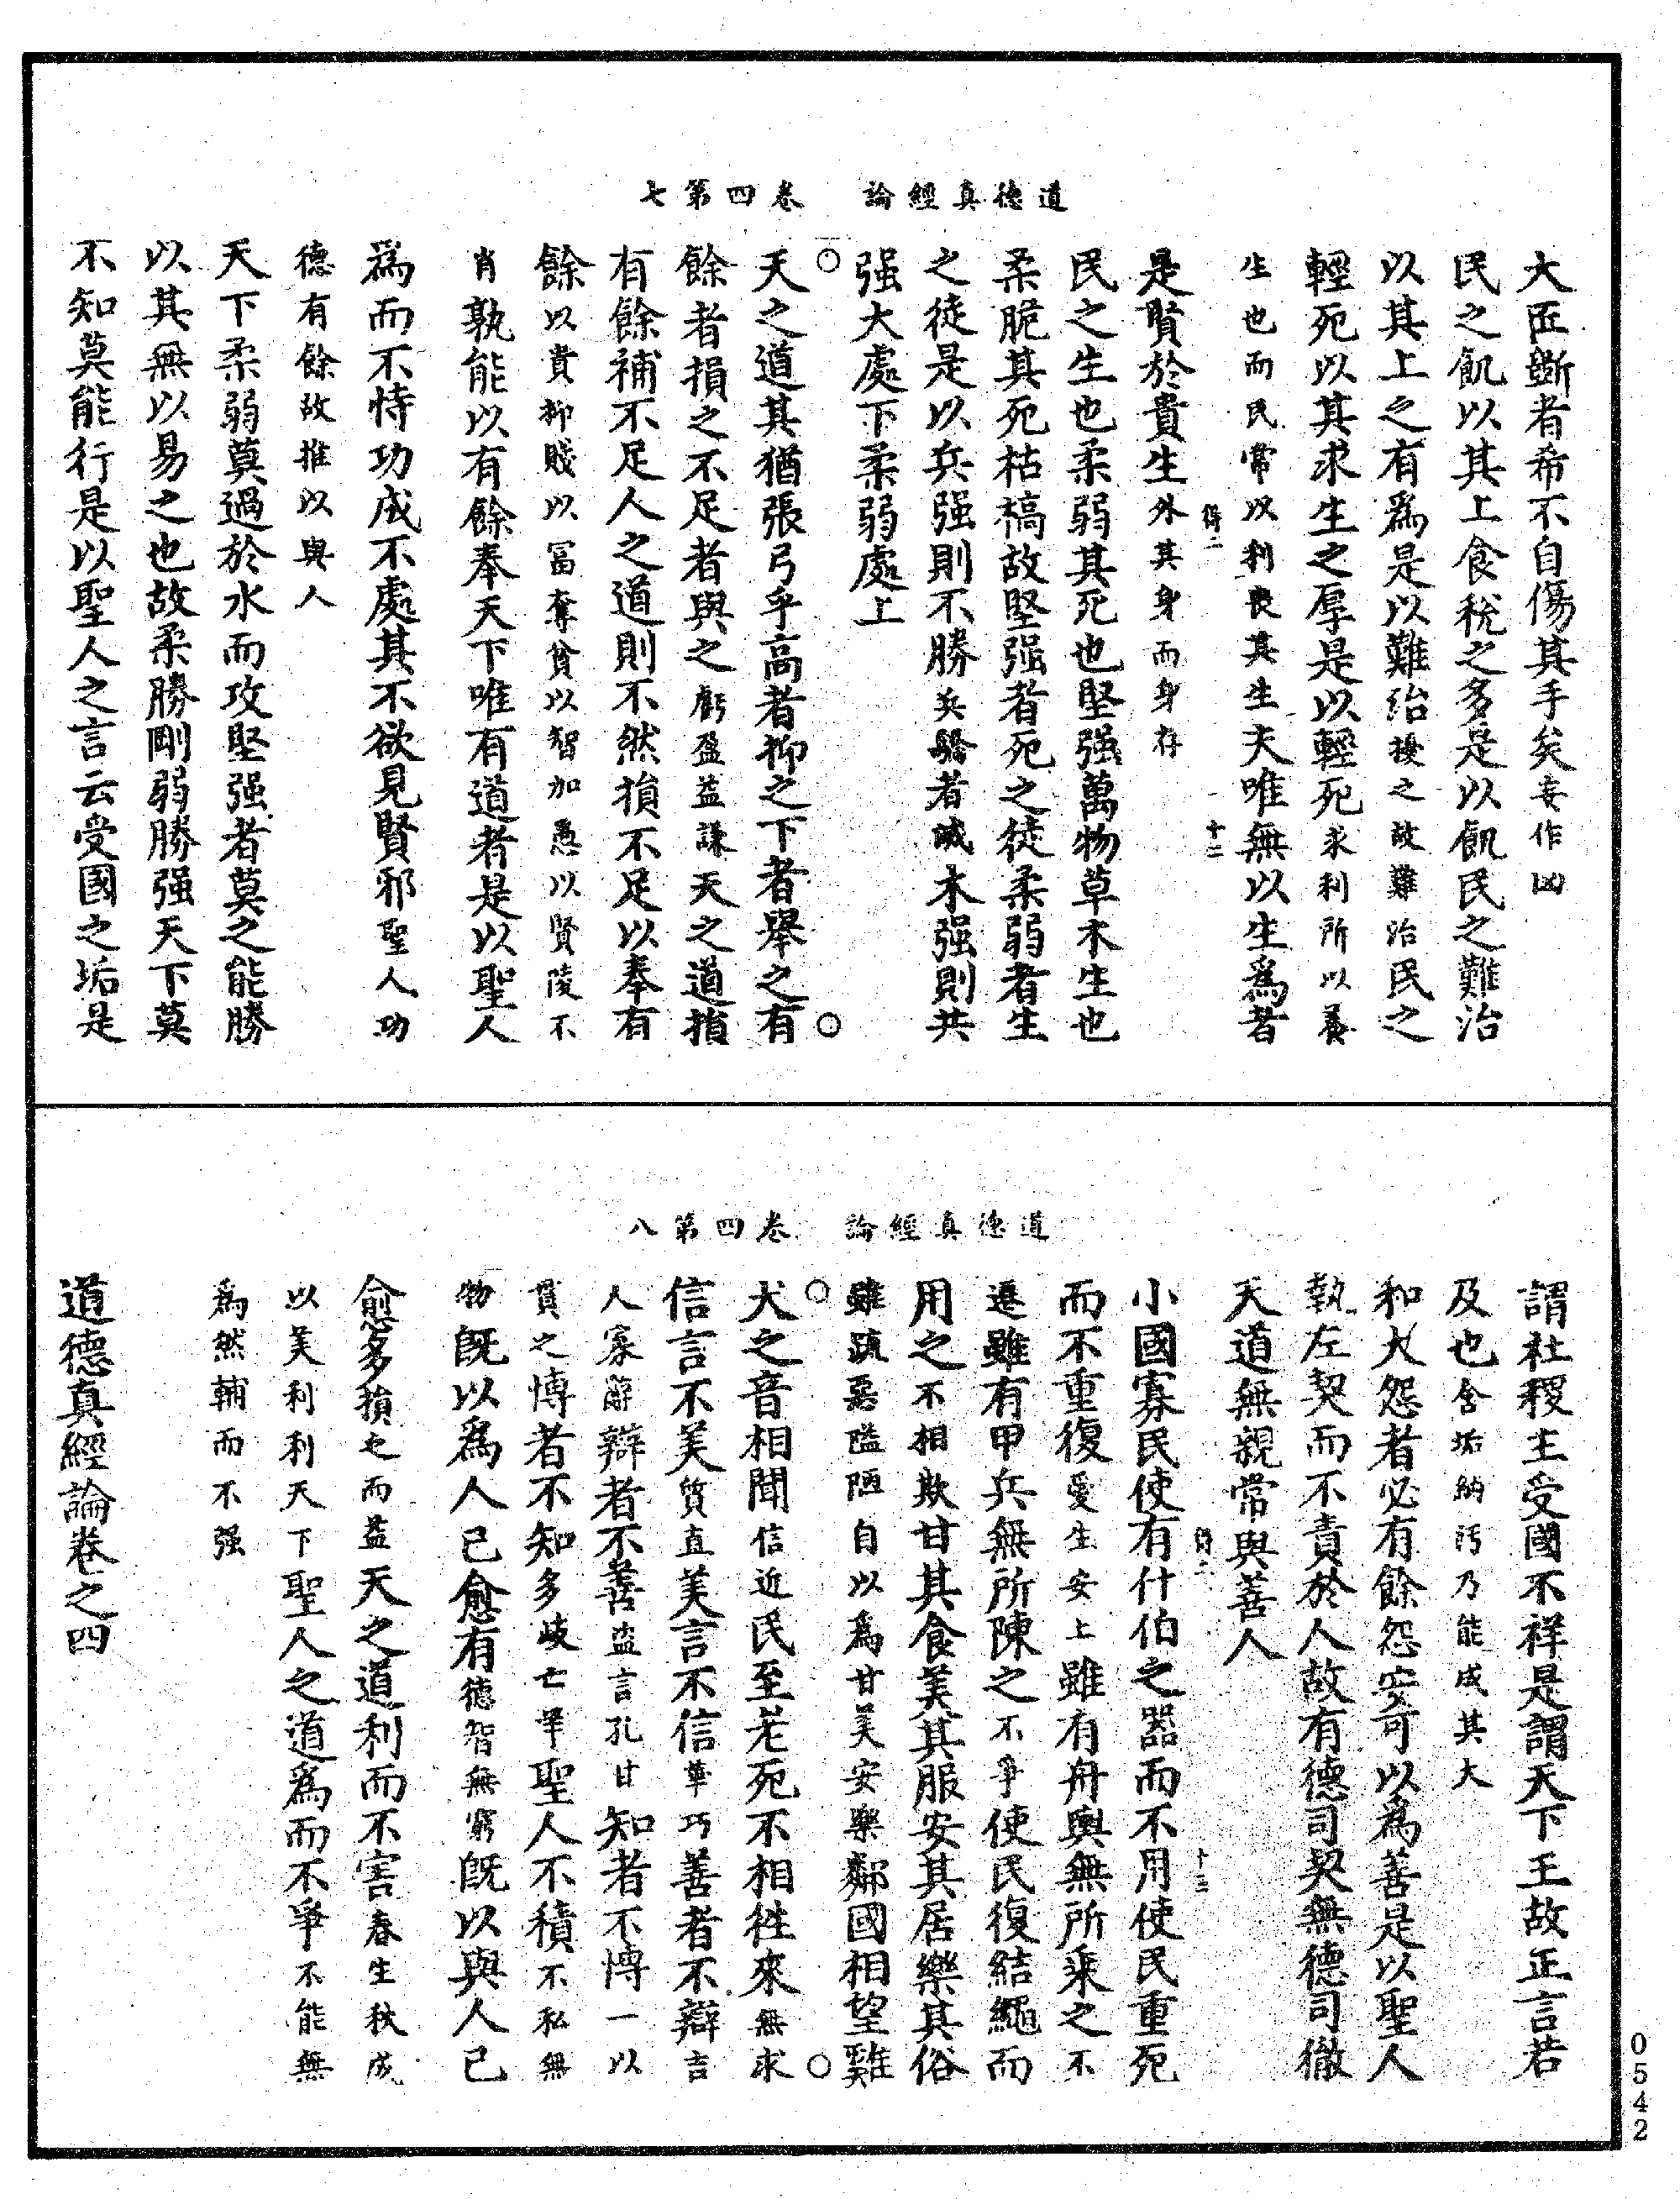 道德真經論　卷四第七
大匠斲者希不自傷其手矣妄作凶
民之飢以其上食稅之多是以飢民之難治
以其上之有爲是以難治擾之故難治民之
輕死以其求生之厚是以輕死求利所以養
生也而民常以利喪其生夫唯無以生爲者
是賢於貴生外其身而身存
得二　十二
民之生也柔弱其死也堅强萬物草木生也
柔脆其死枯槁故堅强者死之徒柔弱者生
之徒是以兵强則不勝兵驕者滅木强則共
强大處下柔弱處上
天之道其猶張弓乎高者抑之下者舉之有
餘者損之不足者與之虧盈益謙天之道損
有餘補不足人之道則不然損不足以奉有
餘以貴抑賤以富奪貧以智加愚以賢陵不
肖孰能以有餘奉天下唯有道者是以聖人
爲而不恃功成不處其不欲見賢邪聖人功
德有餘故推以與人
天下柔弱莫過於水而攻堅强者莫之能勝
以其無以易之也故柔勝剛弱勝强天下莫
不知莫能行是以聖人之言云受國之垢是
道德真經論　卷四第八
謂社稷主受國不祥是謂天下王故正言若
及也含垢納污乃能成其大
和大怨者必有餘怨安可以為善是以聖人
執左契而不責於人故有德司契無德司徹
天道無親常與善人
得二　十三
小國寡民使有什伯之器而不用使民重死
而不重復愛生安上雖有舟輿無所乘之不
遷雖有甲兵無所陳之不爭使民復結繩而
用之不相欺甘其食美其服安其居樂其俗
雖疏惡隘陋自以爲甘美安樂鄰國相望雞
犬之音相聞信近民至老死不相徃來無求
信言不美質直美言不信華巧善者不辯吉
人寡辭辯者不善盜言孔甘知者不博一以
貫之博者不知多岐亡羊聖人不積不私無
物既以爲人己愈有德智無窮既以與人己
愈多損之而益天之道利而不害春生秋成
以美利利天下聖人之道爲而不爭不能無
爲然輔而不强
道德真經論卷之四
0542